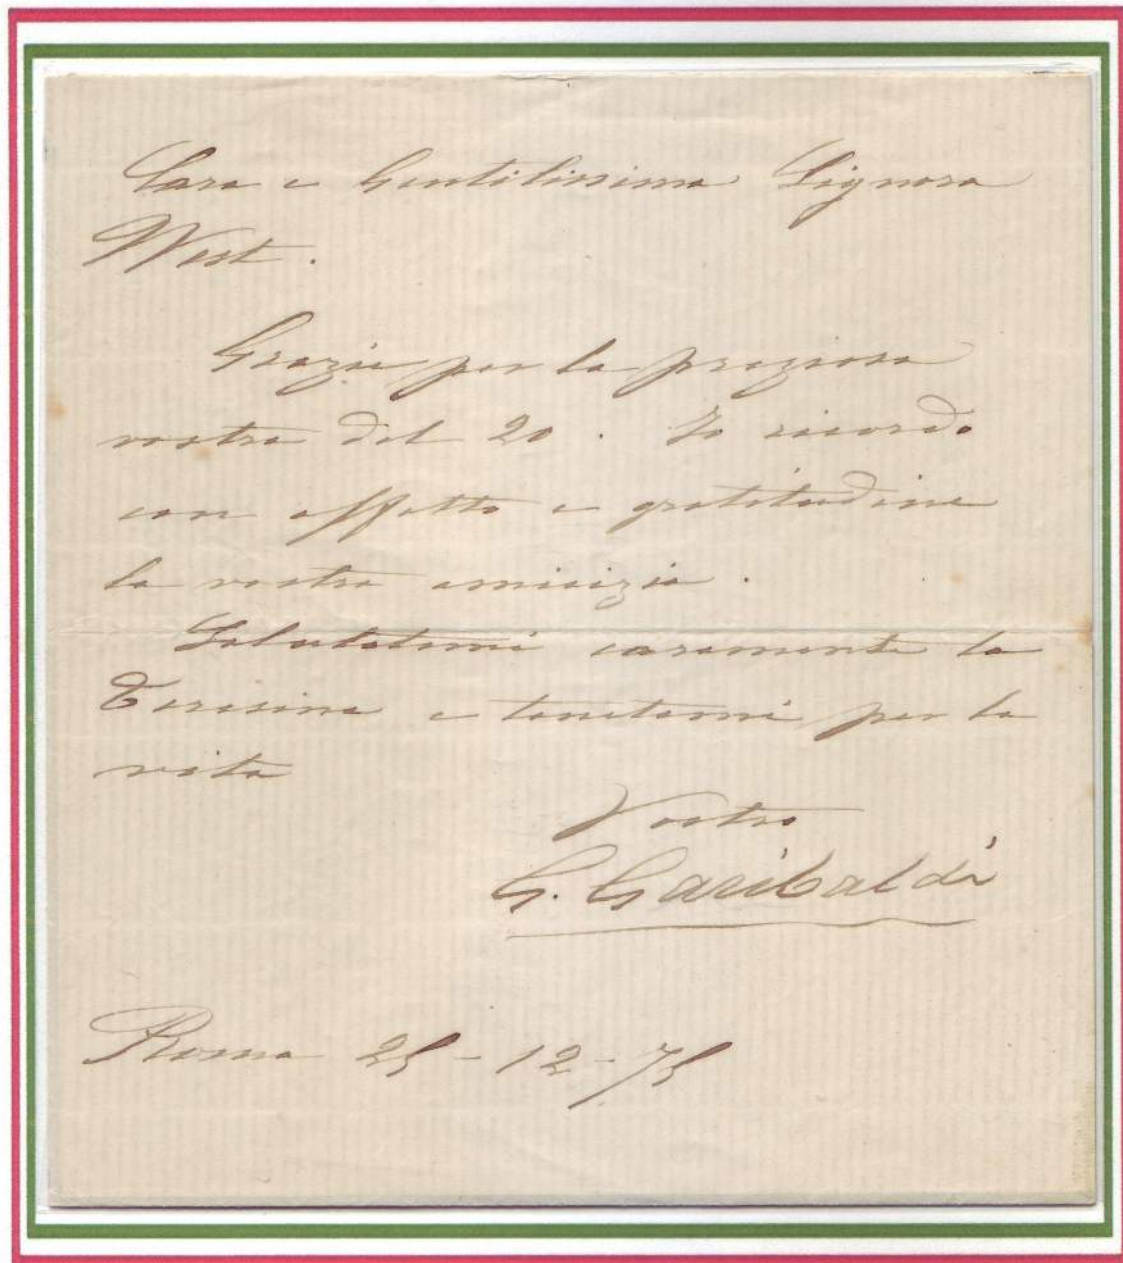 Cara e Gentilissima Signora
West.
Grazie per la preziosa
vostra del 20. Io ricordo
con affetto e gratitudine
la vostra amicizia.
Salutatemi caramente la
Teresina e tenetemi per la
vita
Vostro
G. Garibaldi
Roma 25-12-75